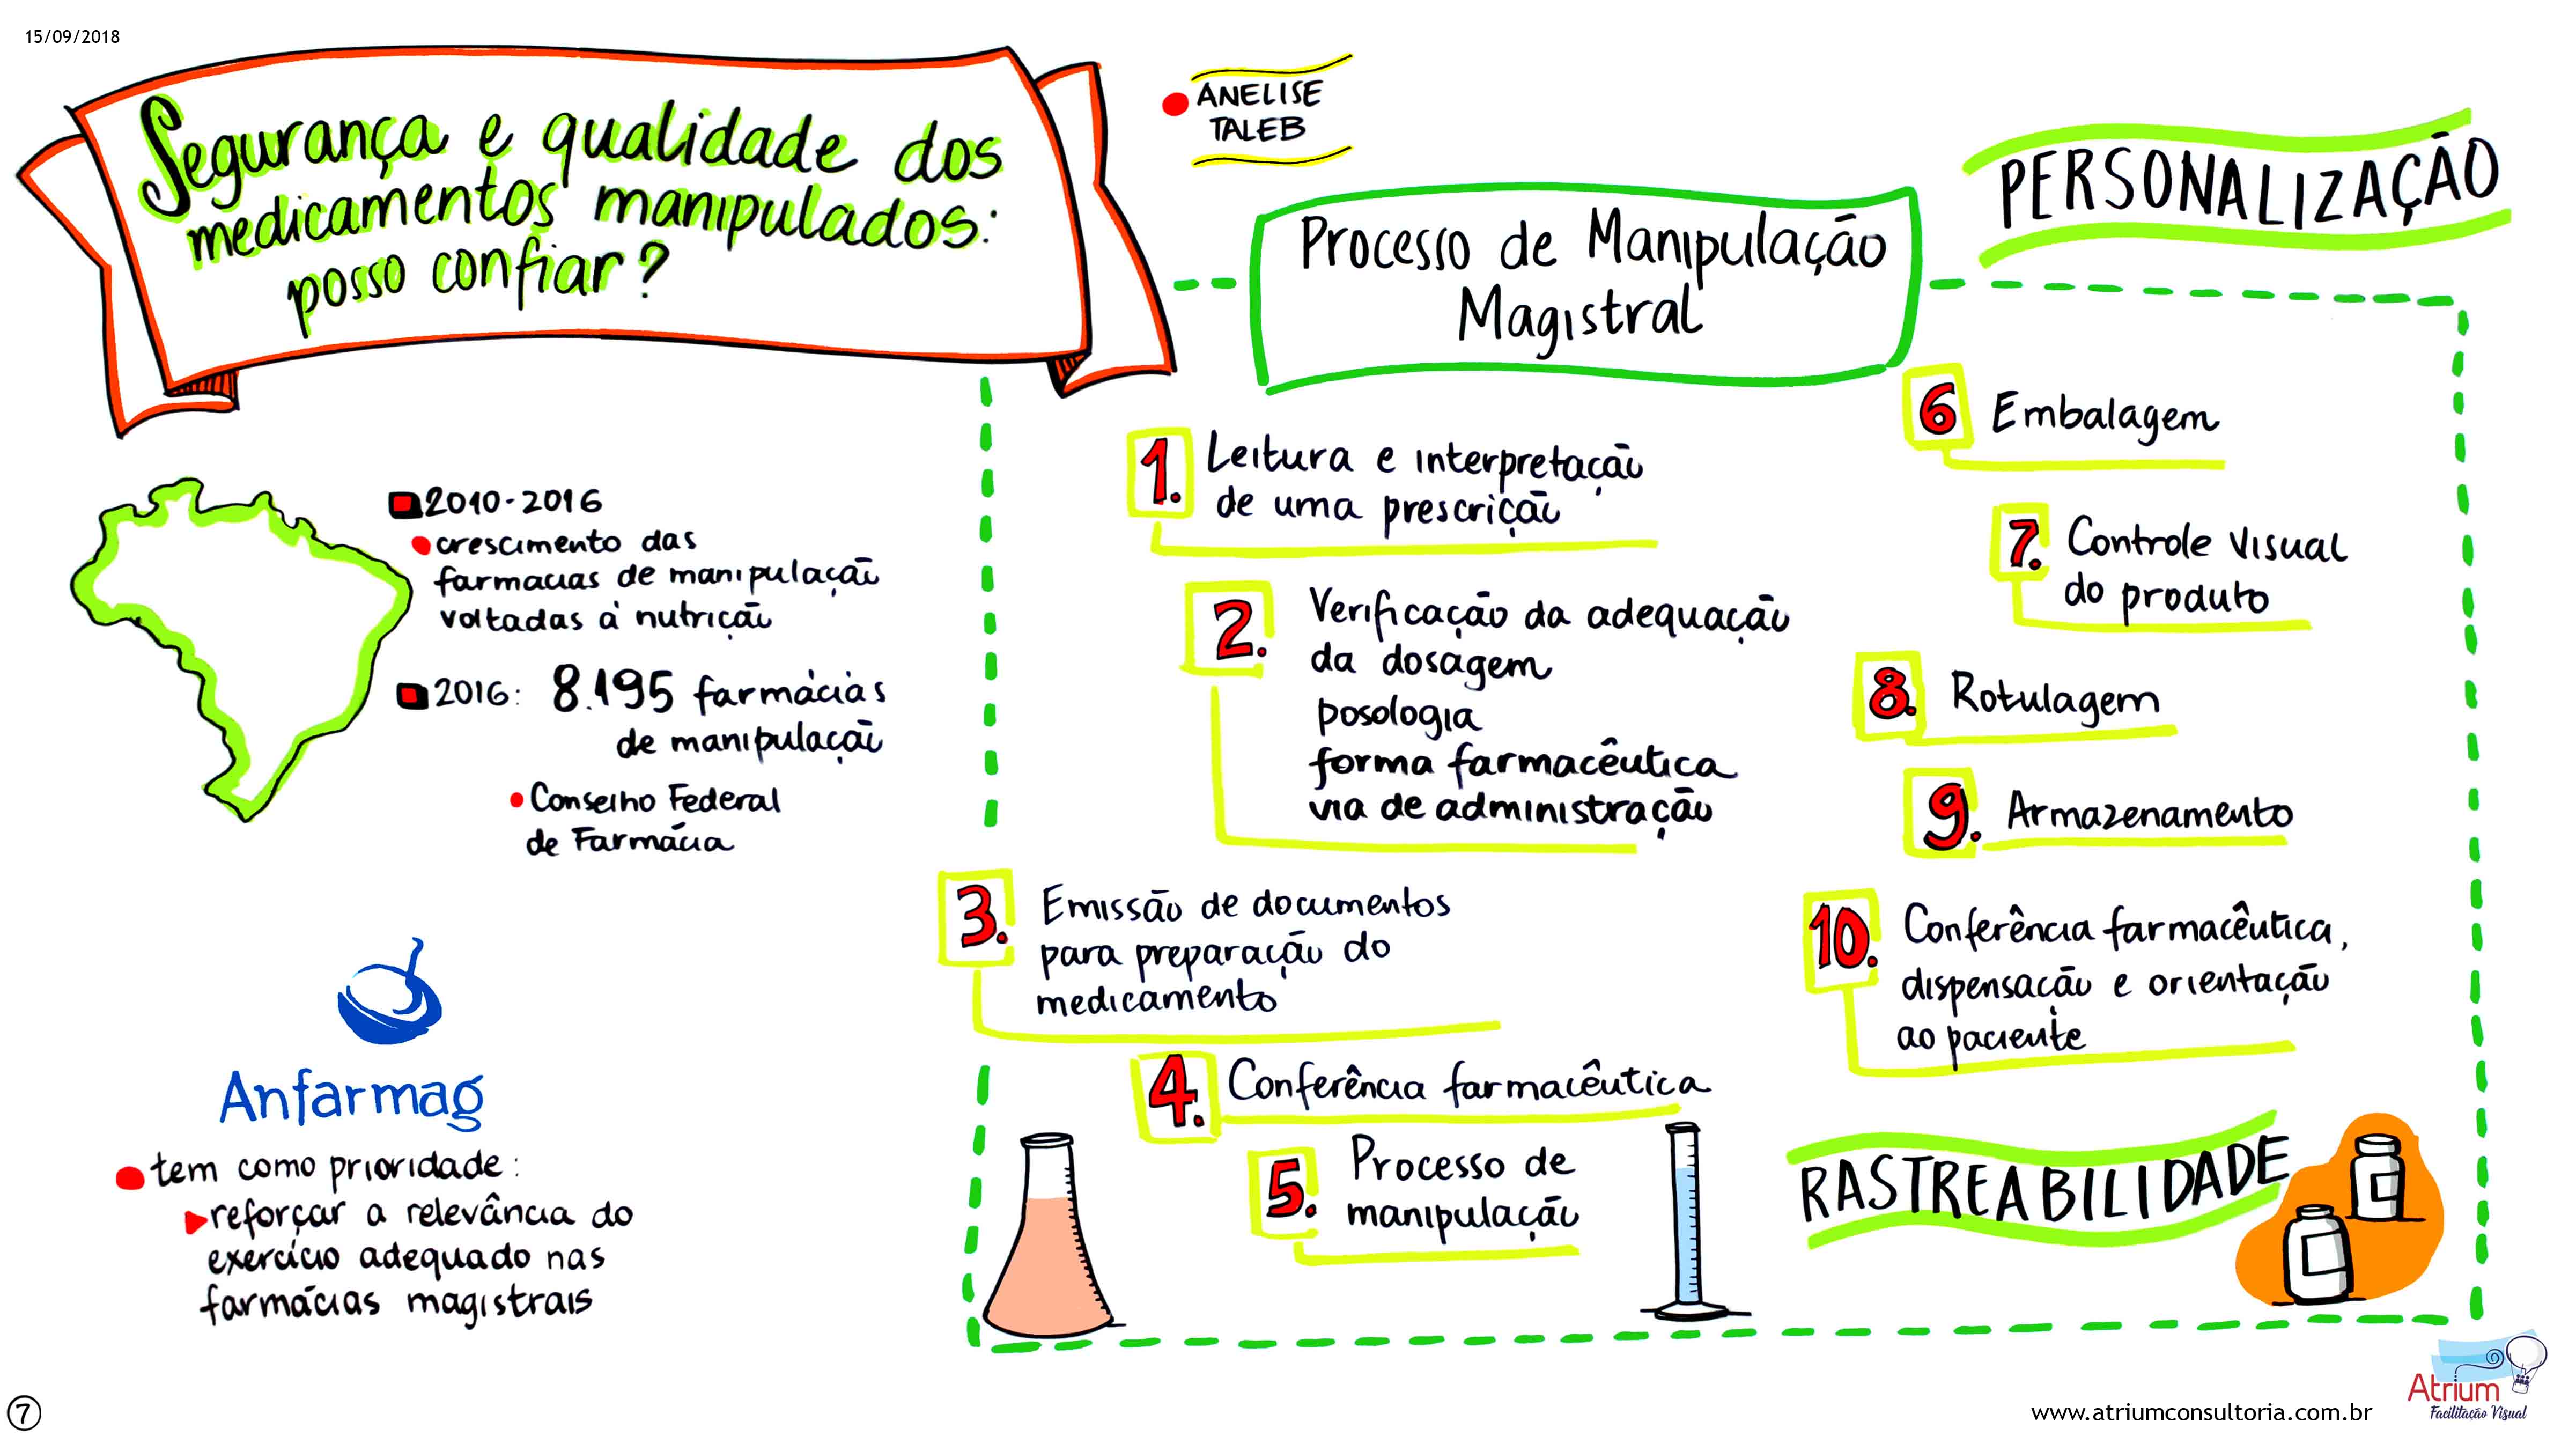 15/09/2018
Segurança e qualidade dos
medicamentos manipulados:
posso confiar?
ANELISE
TALEB
2010-2016
crescimento das
farmacias de manipulação
voltadas à nutrição
2016: 8.195 farmácias
de manipulação
Conselho Federal
de Farmácia
Anfarmag
tem como prioridade:
reforçar a relevância do
exercício adequado nas
farmácias magistrais
Processo de Manipulação
Magistral
1. Leitura e interpretação
de uma prescrição
2. Verificação da adequação
da dosagem
posologia
forma farmacêutica
via de administração
3. Emissão de documentos
para preparação do
medicamento
4. Conferência farmacêutica
5. Processo de
manipulação
PERSONALIZAÇÃO
6 Embalagem
7. Controle visual
do produto
8. Rotulagem
9. Armazenamento
10. Conferência farmacêutica,
dispensação e orientação
ao paciente
RASTREABILIDADE
7
www.atriumconsultoria.com.br
Atrium
Facilitação Visual